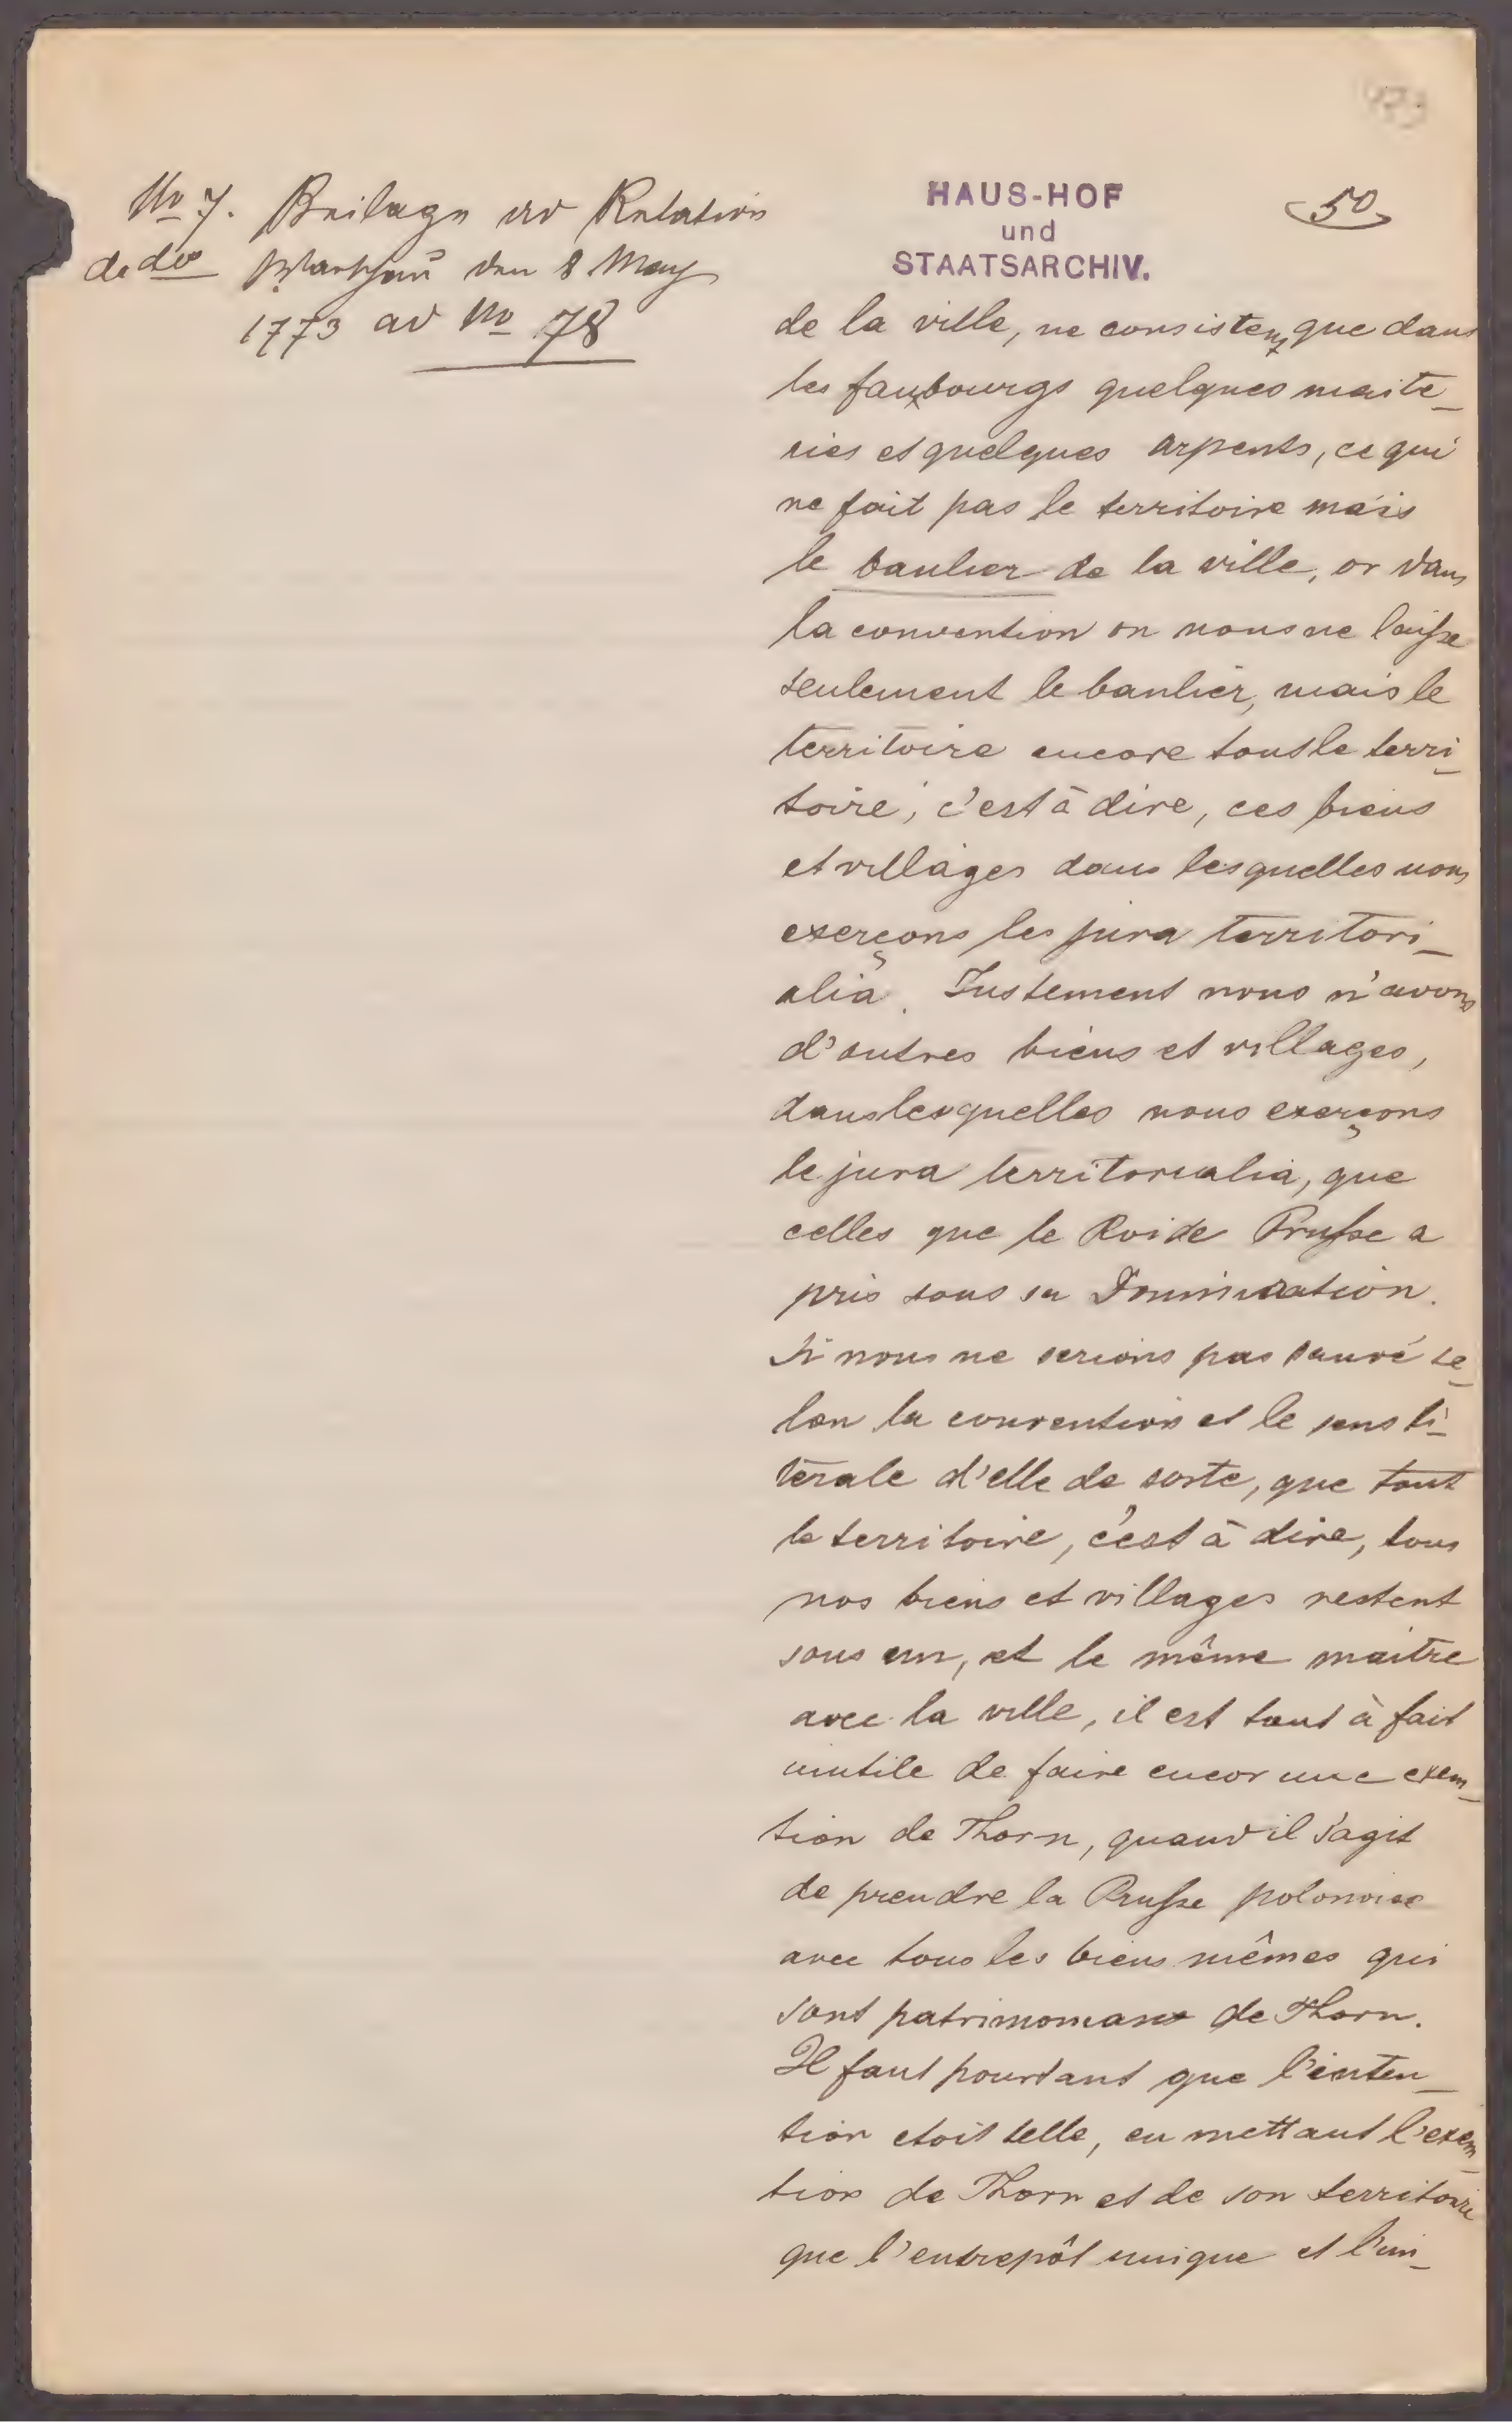 No 7. Beilage ad Relation
de dto Warschau den 8 May
1773 ad No 78
HAUS-HOF
und
STAATSARCHIV.
50
de la ville, ne consistent que dans
les fauxbourgs quelques maite-
ries et quelques arpents, ce qui
ne fait pas le territoire mais
le banlier de la ville, or dans
la convention on nous ne laisse
seulement le banlier, mais le
territoire encore tous le terri-
toire, c'est à dire, ces biens
et villages dans lesquelles nous
exerçons les jura territori-
alia. Justement nous n'avons
d'autres biens et villages,
dans lesquelles nous exerçons
le jura territorialia, que
celles que le Roi de Prusse a
pris sous sa Domination.
Si nous ne serions pas sauvé se-
lon la convention et le sens li-
térale d'elle de sorte, que tout
le territoire, c'est à dire, tous
nos biens et villages restent
sous un, et le même maitre
avec la ville, il est tout à fait
inutile de faire encor une exem-
tion de Thorn, quand il s'agit
de prendre la Prusse polonoise
avec tous les biens mêmes qui
sont patrimoniaux de Thorn.
Il faut pourtant que l'inten-
tion etoit telle, en mettant l'exem-
tion de Thorn et de son territoire
que l'entrepôt unique et l'un-